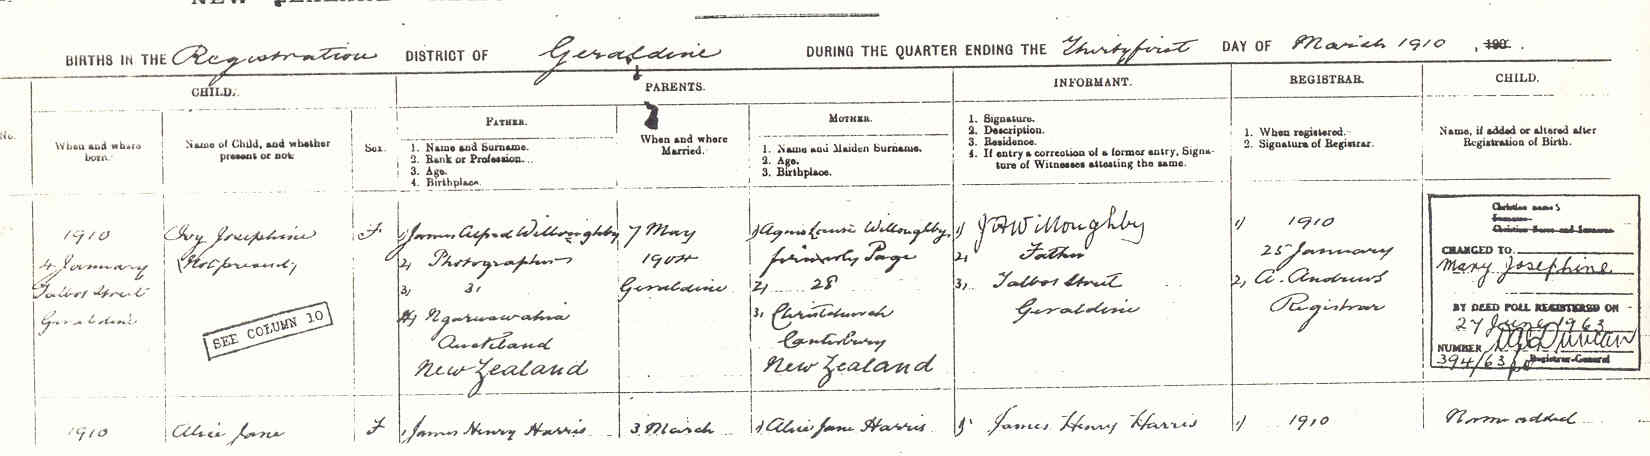 BIRTHS IN THE Registration DISTRICT OF Geraldine DURING THE QUARTER ENDING THE Thirtyfirst DAY OF March 1910 , 190 .
CHILD. PARENTS. INFORMANT. REGISTRAR. CHILD.
No.
When and where born.
Name of Child, and whether present or not.
Sex.
FATHER.
1. Name and Surname.
2. Rank or Profession.
3. Age.
4. Birthplace.
When and where Married.
MOTHER.
1. Name and Maiden Surname.
2. Age.
3. Birthplace.
1. Signature.
2. Description.
3. Residence.
4. If entry a correction of a former entry, Signa-
ture of Witnesses attesting the same.
1. When registered.
2. Signature of Registrar.
Name, if added or altered after
Registration of Birth.
1910
4 January
Talbot Street
Geraldine
Ivy Josephine
(Not present)
SEE COLUMN 10
F
1) James Alfred Willoughby
2) Photographer
3) 31
4) Ngaruawahia
Auckland
New Zealand
7 May
1904
Geraldine
1) Agnes Louise Willoughby
formerly Page
2) 28
3) Christchurch
Canterbury
New Zealand
1) JAWilloughby
2) Father
3) Talbot Street
Geraldine
1) 1910
25 January
2) A. Andrews
Registrar
Christian names
Surname
Christian Name and Surname
CHANGED TO
Mary Josephine
BY DEED POLL REGISTERED ON
27 June 1963
NUMBER
394/63
Registrar-General
1910
Alice Jane
F
1) James Henry Harris
3 March
1) Alice Jane Harris
1) James Henry Harris
1) 1910
added